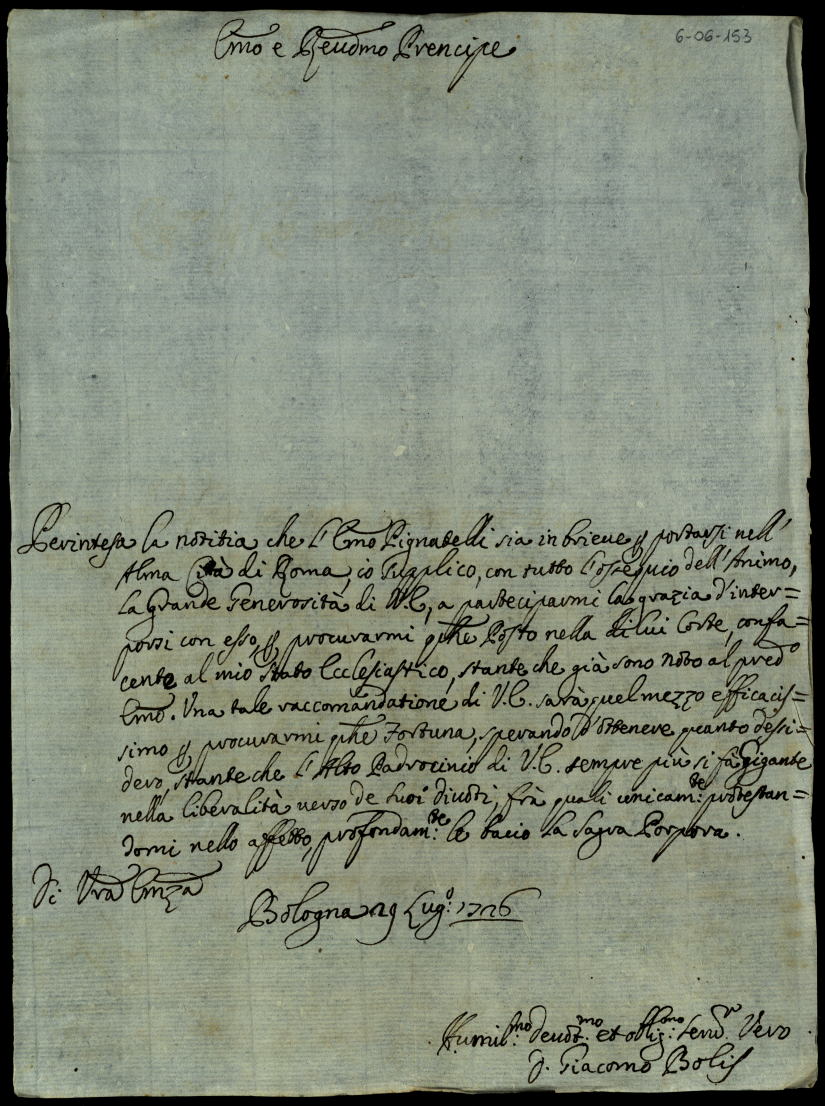 6-06-153
Emo e Reudmo Prencipe
Perintesa la notitia che l'Emo Pignatelli sia in brieue p portarsi nell'
Alma Città di Roma, io supplico, con tutto l'ossequio dell'Animo,
la grande Generosità di V.E., a parteciparmi la grazia d'inter=
porsi con esso, p procurarmi qche Posto nella di lui Corte, confa=
cente al mio Stato Ecclesiastico, stante che già sono noto al predo
Emo. Una tale raccomandatione di V.E. sarà quel mezzo efficacis=
simo p procurarmi qche Fortuna, sperando d'ottenere quanto dessi=
dero, stante che l'Alto Padrocinio di V.E. sempre più si fà gigante
nella liberalità uerso de suoi diuoti, frà quali unicam:te protestan=
domi nello affetto, profondam:te le bacio la Sagra Porpora.
Di Vra Emza
Bologna 29 Lugo: 1726
Humil:mo deuot:mo et oblig:mo seru:r Vero
D. Giacomo Bolis